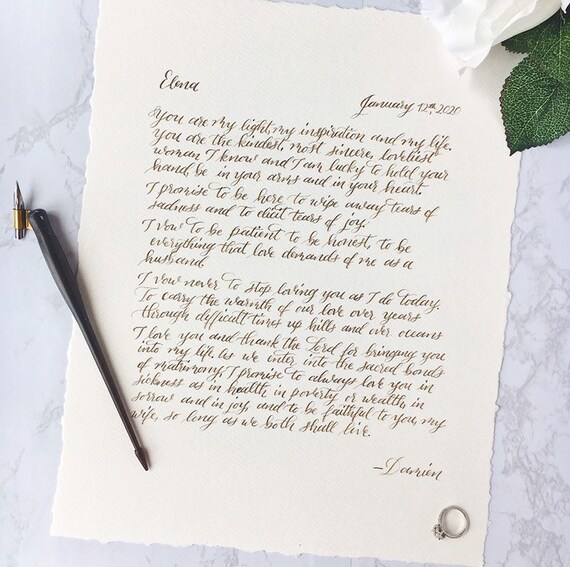 Elena
January 12th, 2020
You are my light, my inspiration and my life.
You are the kindest, most sincere, loveliest
woman I know and I am lucky to hold your
hand be in your arms and in your heart.
I promise to be here to wipe away tears of
sadness and to elicit tears of joy.
I vow to be patient to be honest, to be
everything that love demands of me as a
husband.
I vow never to stop loving you as I do today.
To carry the warmth of our love over years
through difficult times up hills and over oceans
I love you and thank the Lord for bringing you
into my life. As we enter into the sacred bonds
of matrimony, I promise to always love you in
sickness as in health, in poverty or wealth, in
sorrow and in joy, and to be faithful to you, my
wife, so long as we both shall live.
-Darrien